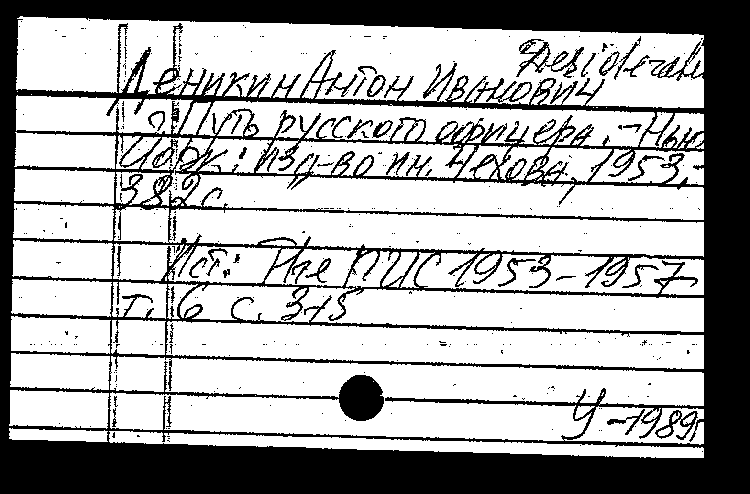 Desiderata
Деникин Антон Иванович
? Путь русского офицера. - Нью
Йорк: изд-во им. Чехова, 1953. -
382 с.
Ист.: The NUC 1953-1957
т. 6 с. 345
У-1989г